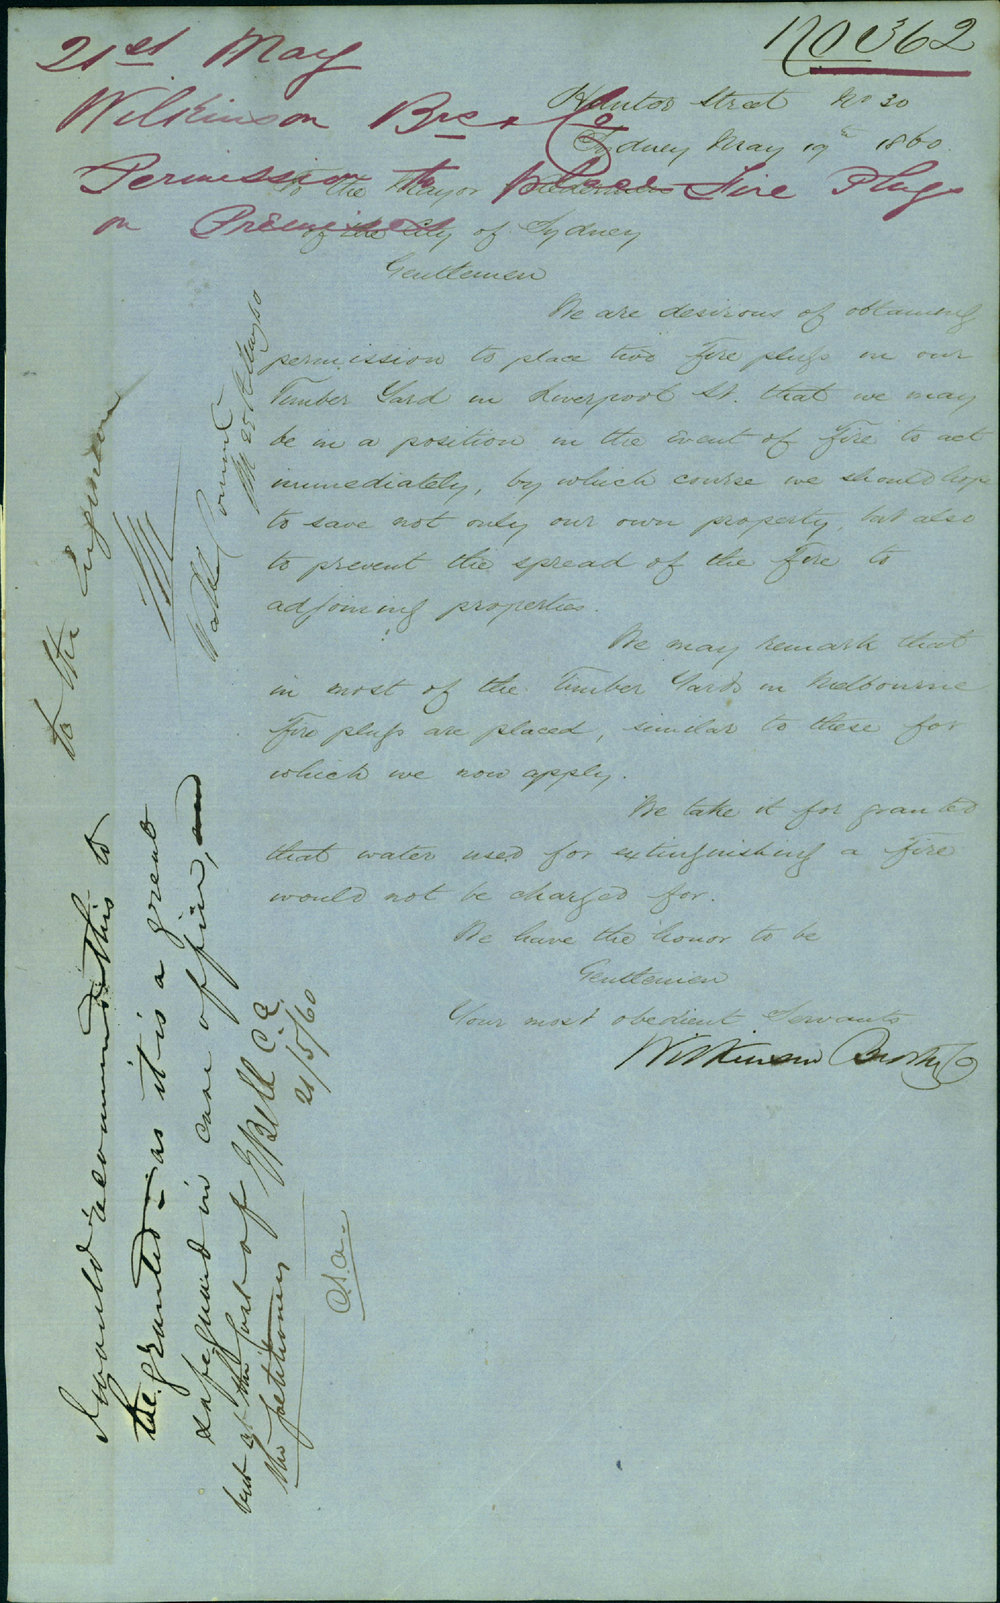 No 362
21st May
Wilkinson Bros & Co
Permission to place Fire Plugs
on Premises
Hunter Street No 30
Sydney May 19th 1860
To the Mayor Aldermen
of the City of Sydney
Gentlemen
We are desirous of obtaining
permission to place two fire plugs in our
Timber Yard in Liverpool St. that we may
be in a position in the Event of Fire to act
immediately, by which course we should hope
to save not only our own property, but also
to prevent the spread of the Fire to
adjoining properties.
We may remark that
in most of the Timber Yards in Melbourne
Fire plugs are placed, similar to these for
which we now apply.
We take it for granted
that water used for extinguishing a fire
would not be charged for.
We have the honor to be
Gentlemen
Your most obedient Servants
Wilkinson Bros & Co
to the Engineer
Water Committee
25th May 60
I would recommend this to
be granted - as it is a great
safeguard in case of fire, and
but at the cost of
the petitioners
E Bell C.E.
21/5/60